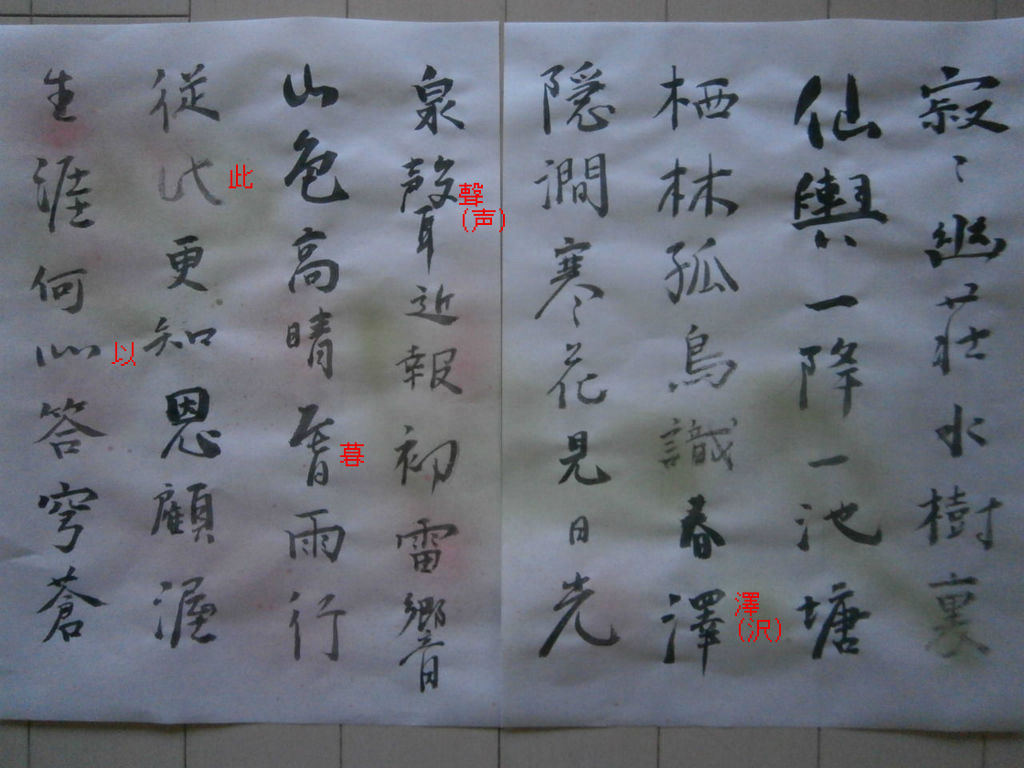 寂〻幽荘水樹裏
仙輿一降一池塘
栖林孤鳥識春澤
澤
(沢)
隠澗寒花見日光
泉聲近報初雷響
聲
(声)
山色高晴暮雨行
暮
従此更知恩顧渥
此
生涯何以答穹蒼
以